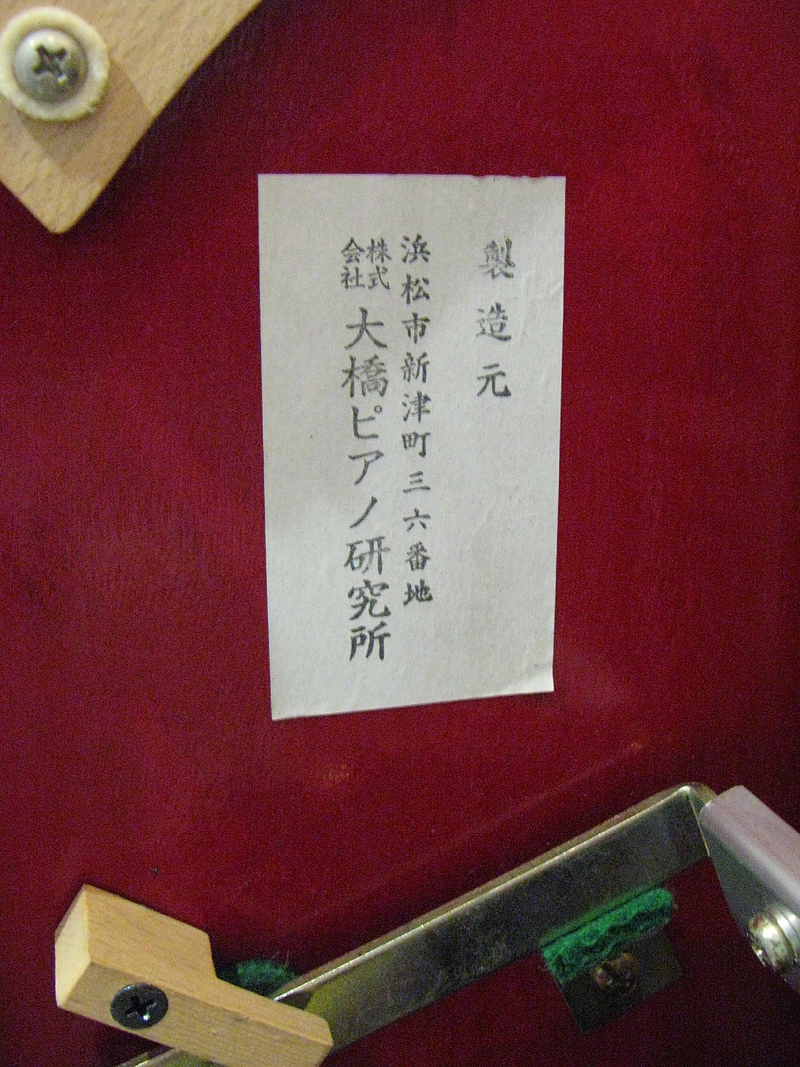 製造元
浜松市新津町三六番地
株式会社大橋ピアノ研究所